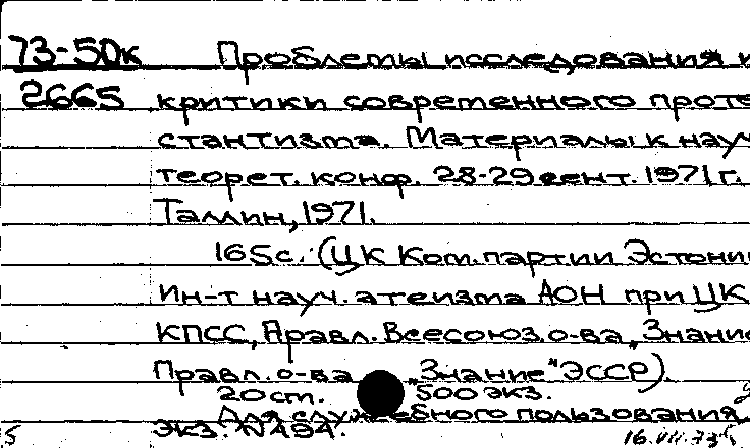 73-50к Проблемы исследования и
2665 критики современного проте
стантизма. Материалы к науч
теорет. конф. 28-29 сент. 1971 г.
Таллин, 1971.
165с. (ЦК Ком. партии Эстони
Ин-т науч. атеизма АОН при ЦК
КПСС, Правл. Всесоюз. о-ва „Знание
Правл. о-ва „Знание" ЭССР).
20 см. 500 экз.
Для служебного пользования
экз. N 494.
5 16.VII.73